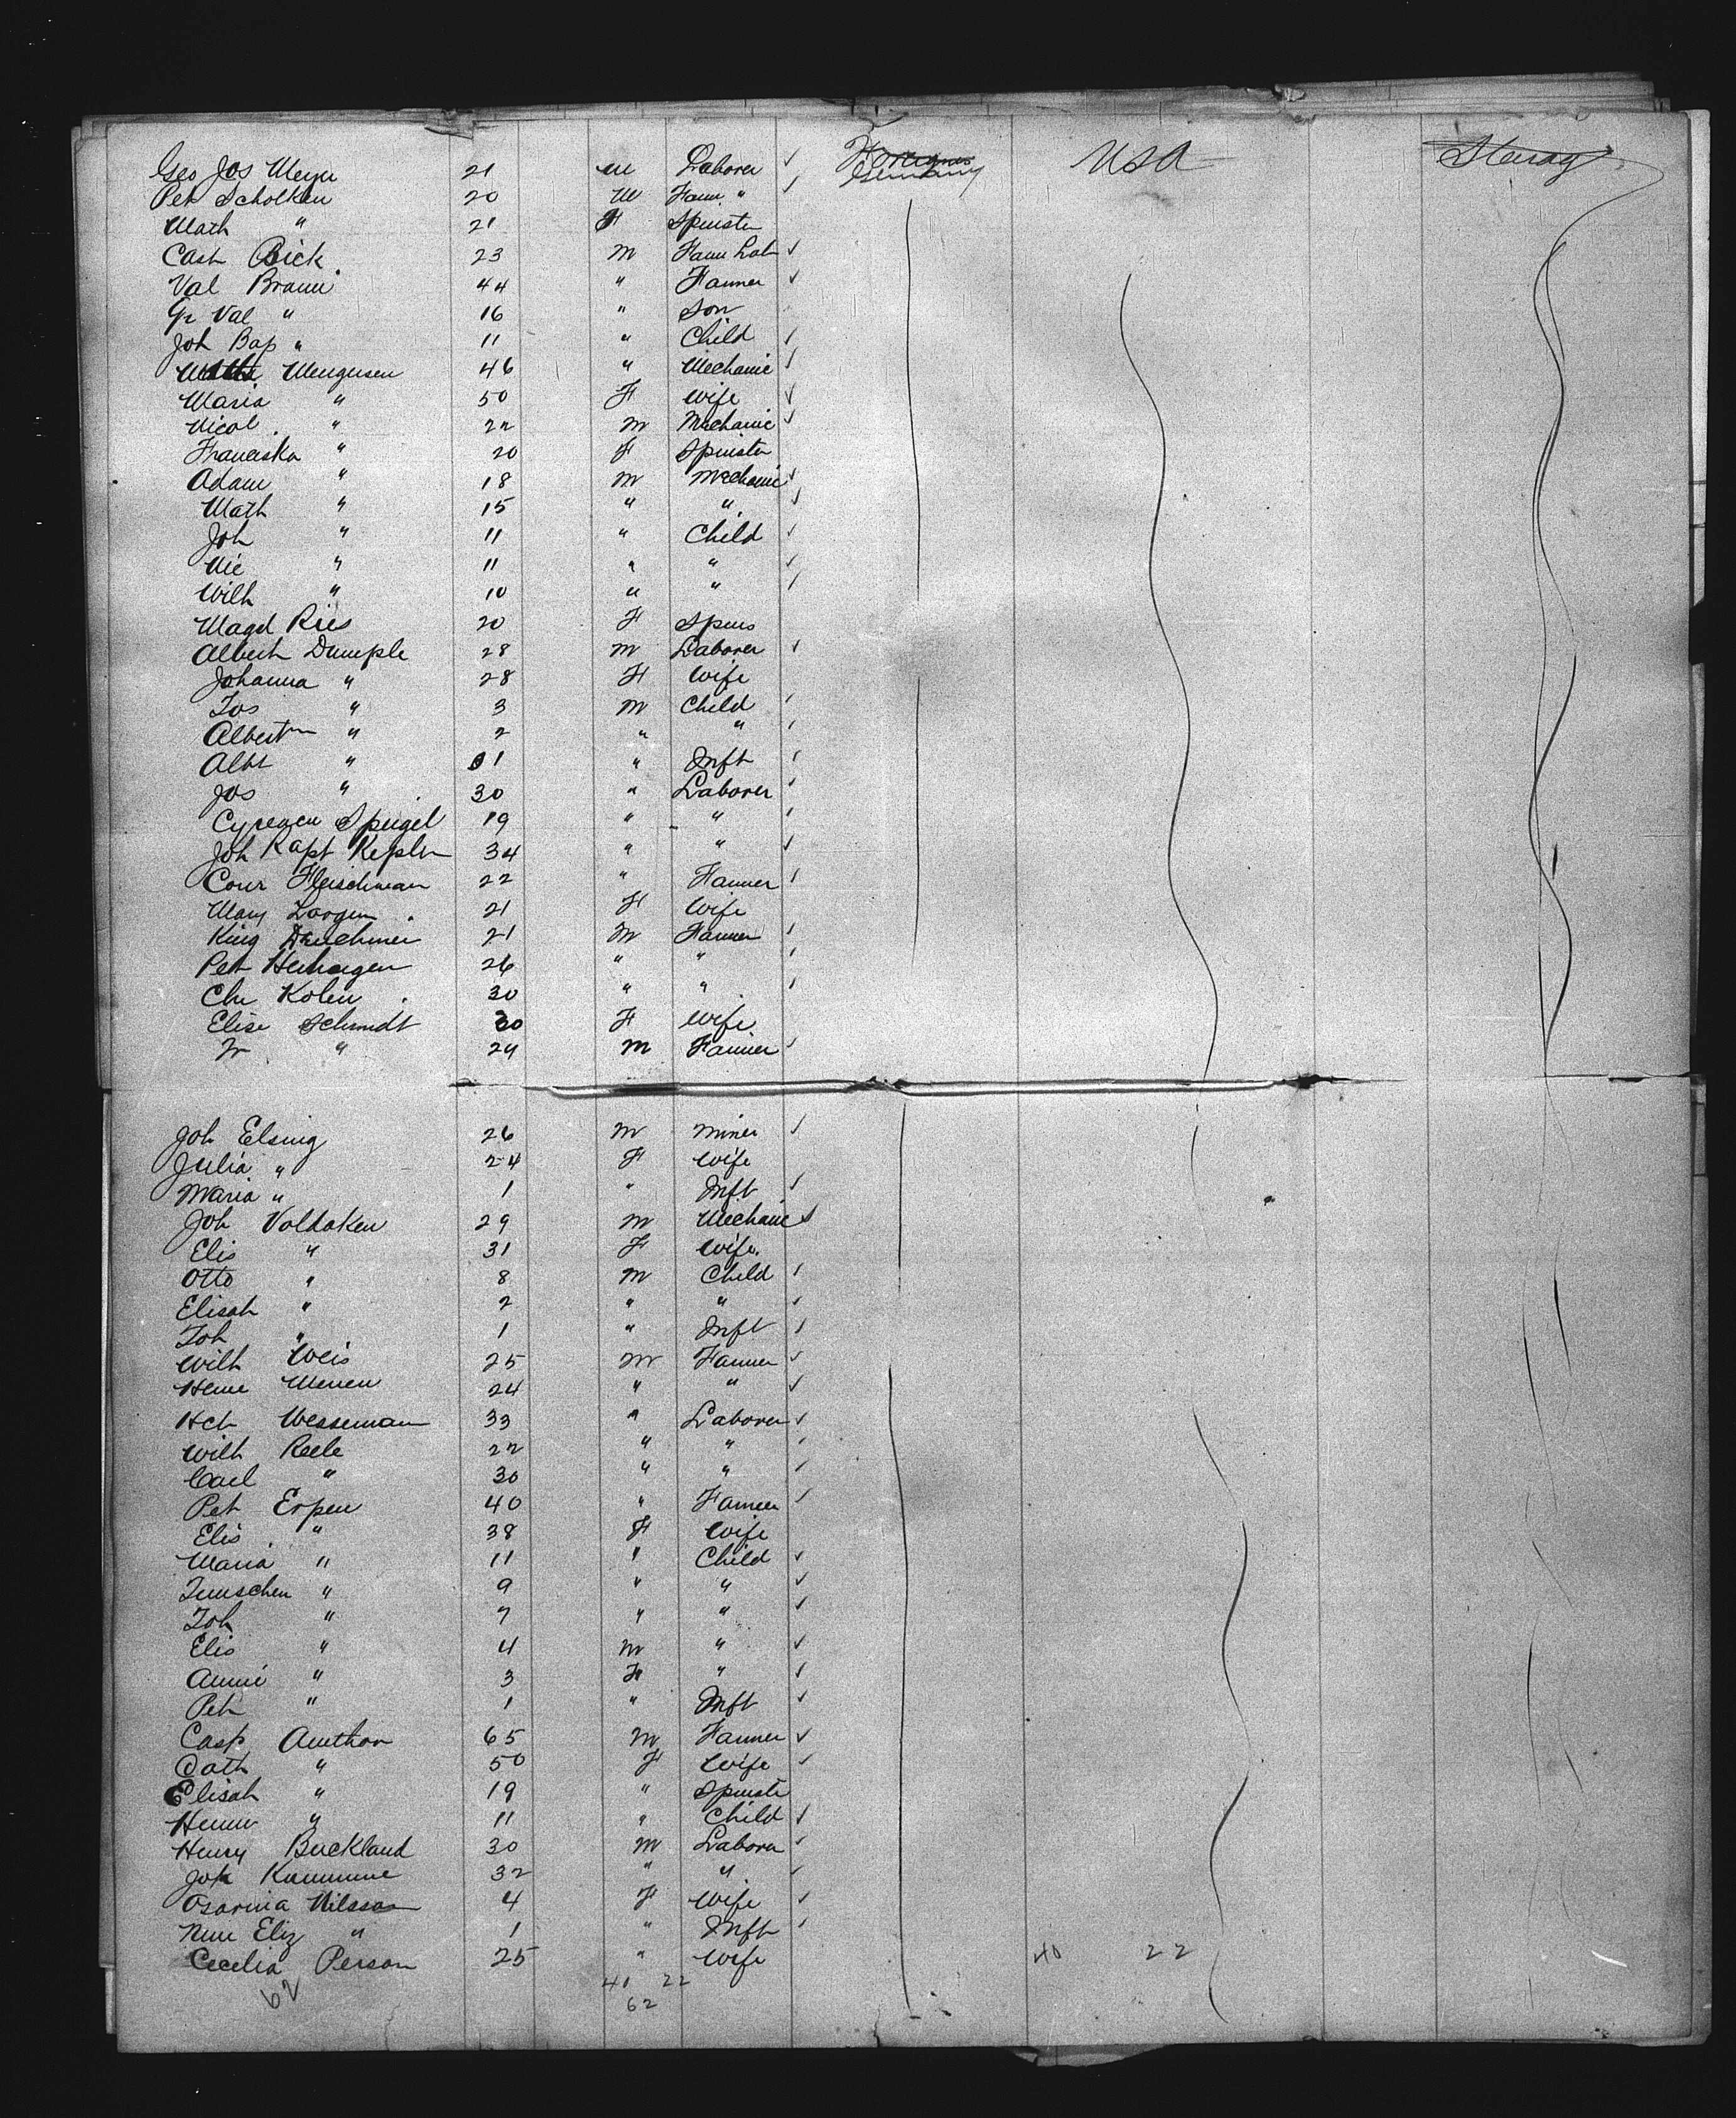 Geo Jos Meyer 21 M Laborer Germany USA Sterag
Pet Scholken 20 M Farm "
Math " 21 F Spinster
Cash Bick 23 M Farm Lab
Val Braun 44 " Farmer
Gr Val " 16 " Son
Joh Bap " 11 " Child
Mengusen 46 " Mechanic
Maria " 50 F Wife
Nicol " 22 M Mechanic
Franciska " 20 F Spinster
Adam " 18 M Mechanic
Math " 15 " "
Joh " 11 " Child
Nic " 11 " "
Wilh " 10 " "
Magd Ries 20 F Spins
Albert Dumple 28 M Laborer
Johanna " 28 F Wife
Jos " 3 M Child
Albert " 2 " "
Albt " 1 " Inft
Jos " 30 " Laborer
Speigel 19 " "
Joh Bapt Kepler 34 " "
Conr Fleischman 22 " Farmer
Mary Largen 21 F Wife
King 21 M Farmer
Pet 26 " "
Chr Kolen 30 " "
Elise Schmidt 30 F Wife
Fr " 24 M Farmer
Joh Elsing 26 M Miner
Julia " 24 F Wife
Maria " 1 " Inft
Joh Voldaken 29 M Mechanic
Elis " 31 F Wife
Otto " 8 M Child
Elisah " 2 " "
Joh " 1 " Inft
Wilh Weis 25 M Farmer
24 " "
Hch Wesseman 33 " Laborer
Wilh Reele 22 " "
Carl " 30 " "
Pet Erpen 40 " Farmer
Elis " 38 F Wife
Maria " 11 " Child
" 9 " "
Joh " 7 " "
Elis " 4 M "
Annie " 3 F "
Pet " 1 " Inft
Casp Amthor 65 M Farmer
Cath " 50 F Wife
Elisah " 19 " Spinster
" 11 " Child
Henry Buckland 30 M Laborer
Joh Kummune 32 " "
Osarina Nilsson 4 F Wife
Eliz " 1 " Inft
Cecelia Person 25 " Wife 40 22
62 40 22
62